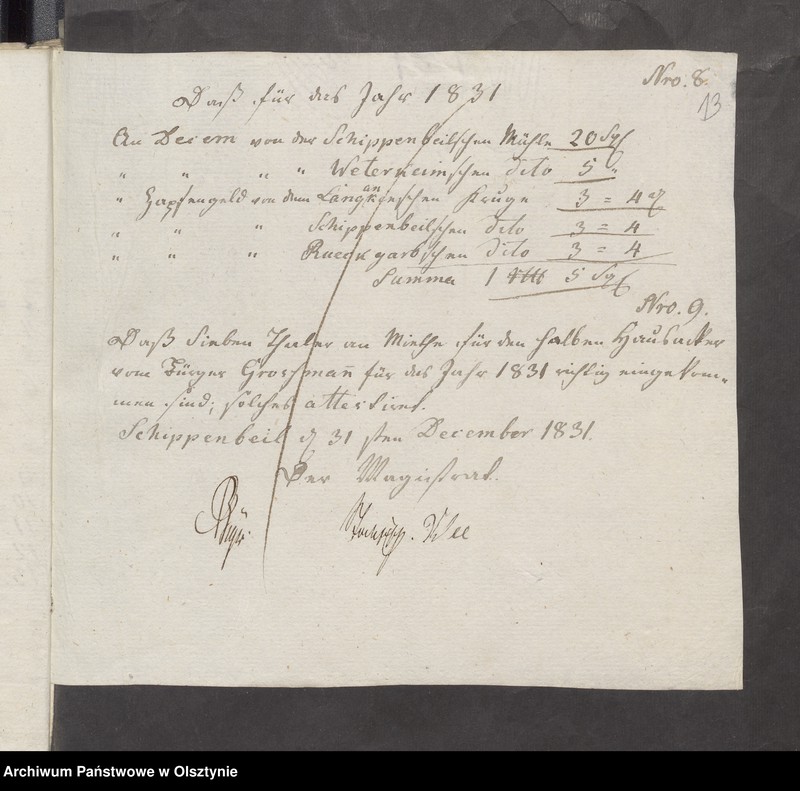 Nro. 8.
13
Daß für das Jahr 1831
An Decem von der Schippenbeilschen Mühle 20 Sg
" " " " Weterkeimschen dito 5 "
" Zapfengeld von dem Langkeschen Kruge 3 = 4 d
" " " Schippenbeilschen dito 3 = 4
" " " Rueckgarbschen dito 3 = 4
Summa 1 5 Sg
Nro. 9.
Daß Sieben Thaler an Miethe für den halben Hausacker
vom Bürger Grossmañ für das Jahr 1831 richtig eingekom-
men sind; solches attestiret.
Schippenbeil d 31 sten December 1831.
Der Magistrat.
Archiwum Państwowe w Olsztynie